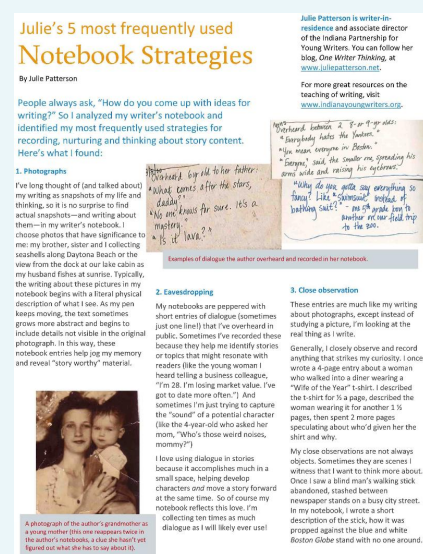 Julie's 5 most frequently used
Notebook Strategies
By Julie Patterson
Julie Patterson is writer-in-
residence and associate director
of the Indiana Partnership for
Young Writers. You can follow her
blog, One Writer Thinking, at
www.juliepatterson.net.
For more great resources on the
teaching of writing, visit
www.indianayoungwriters.org.
People always ask, "How do you come up with ideas for
writing?" So I analyzed my writer's notebook and
identified my most frequently used strategies for
recording, nurturing and thinking about story content.
Here's what I found:
1. Photographs
I've long thought of (and talked about)
my writing as snapshots of my life and
thinking, so it is no surprise to find
actual snapshots—and writing about
them—in my writer's notebook. I
choose photos that have significance to
me: my brother, sister and I collecting
seashells along Daytona Beach or the
view from the dock at our lake cabin as
my husband fishes at sunrise. Typically,
the writing about these pictures in my
notebook begins with a literal physical
description of what I see. As my pen
keeps moving, the text sometimes
grows more abstract and begins to
include details not visible in the original
photograph. In this way, these
notebook entries help jog my memory
and reveal "story worthy" material.
A photograph of the author's grandmother as
a young mother (this one reappears twice in
the author's notebooks, a clue she hasn't yet
figured out what she has to say about it).
Overheard big old to her father:
"What comes after the stars,
daddy?"
"No one knows for sure. It's a
mystery."
"Is it lava?"
Overheard between 2 8- or 9-yr-olds:
"Everybody hates the Yankees."
"You mean everyone in Boston."
"Everyone," said the smaller one, spreading his
arms wide and raising his eyebrows.
"Why do you gotta say everything so
fancy? Like 'swimsuit' instead of
bathing suit?" - one 5th grade boy to
another on our field trip
to the zoo.
Examples of dialogue the author overheard and recorded in her notebook.
2. Eavesdropping
My notebooks are peppered with
short entries of dialogue (sometimes
just one line!) that I've overheard in
public. Sometimes I've recorded these
because they help me identify stories
or topics that might resonate with
readers (like the young woman I
heard telling a business colleague,
"I'm 28. I'm losing market value. I've
got to date more often.") And
sometimes I'm just trying to capture
the "sound" of a potential character
(like the 4-year-old who asked her
mom, "Who's those weird noises,
mommy?")
I love using dialogue in stories
because it accomplishes much in a
small space, helping develop
characters and move a story forward
at the same time. So of course my
notebook reflects this love. I'm
collecting ten times as much
dialogue as I will likely ever use!
3. Close observation
These entries are much like my writing
about photographs, except instead of
studying a picture, I'm looking at the
real thing as I write.
Generally, I closely observe and record
anything that strikes my curiosity. I once
wrote a 4-page entry about a woman
who walked into a diner wearing a
"Wife of the Year" t-shirt. I described
the t-shirt for ½ a page, described the
woman wearing it for another 1 ½
pages, then spent 2 more pages
speculating about who'd given her the
shirt and why.
My close observations are not always
objects. Sometimes they are scenes I
witness that I want to think more about.
Once I saw a blind man's walking stick
abandoned, stashed between
newspaper stands on a busy city street.
In my notebook, I wrote a short
description of the stick, how it was
propped against the blue and white
Boston Globe stand with no one around.